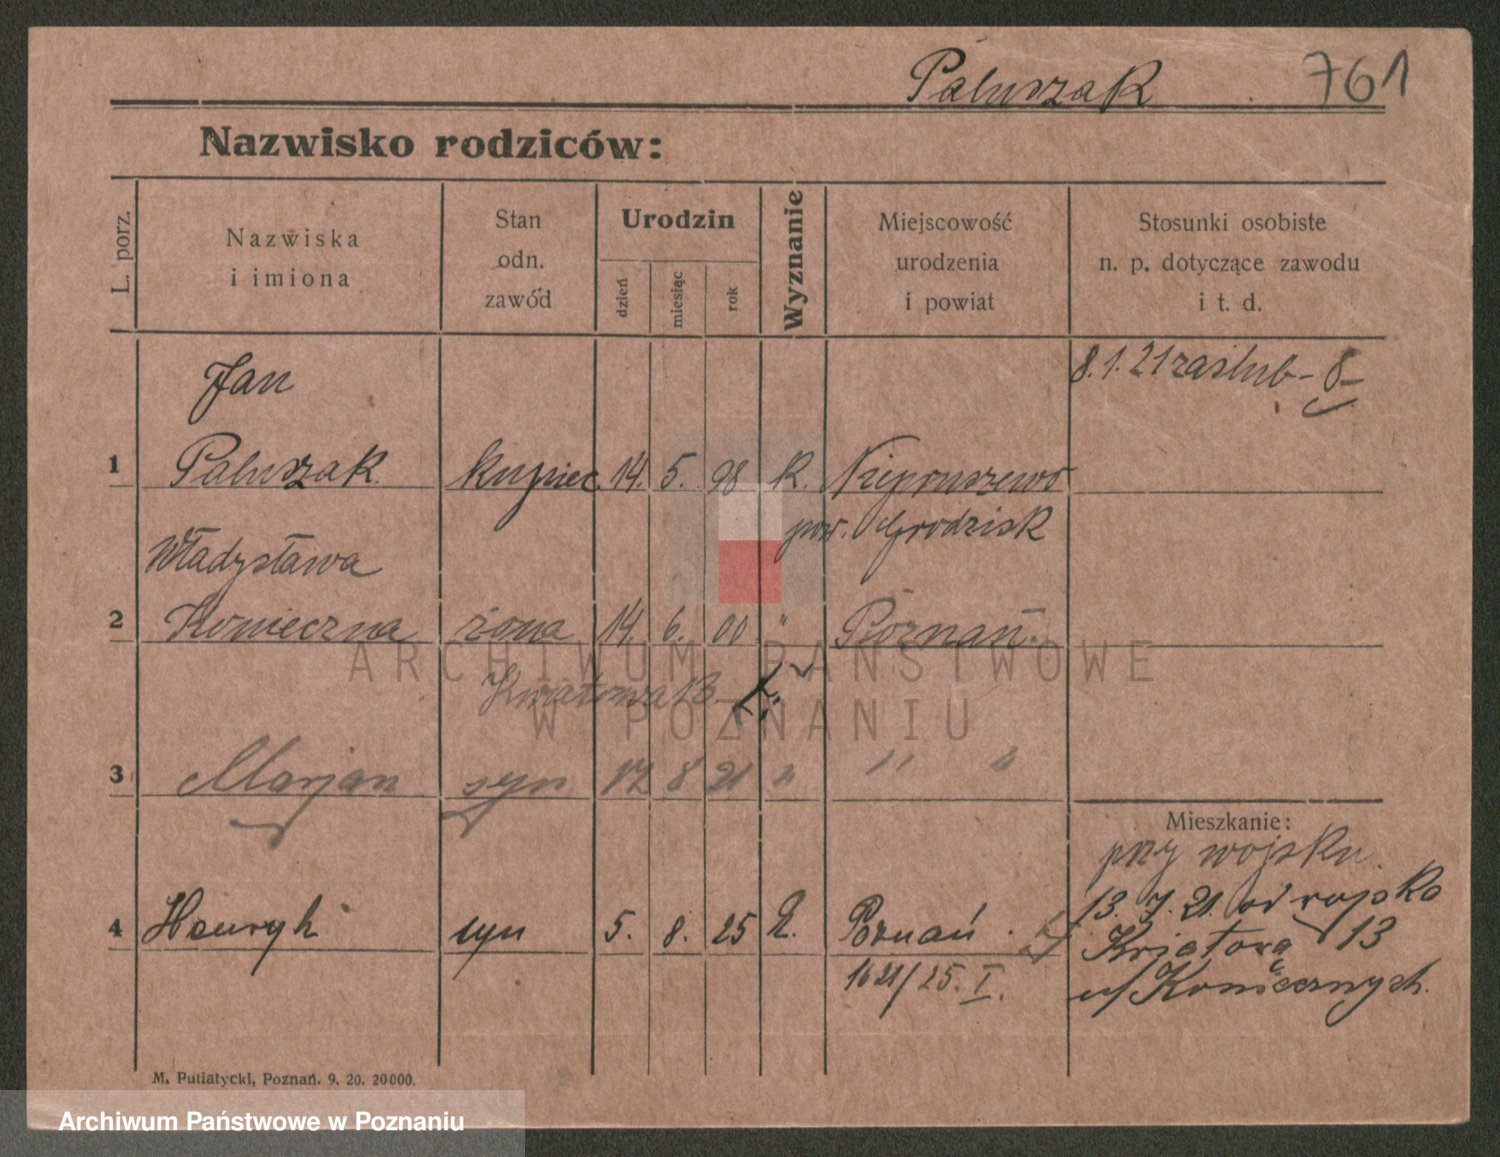 Paluszak 761
Nazwisko rodziców:
L. porz.
Nazwiska
i imiona
Stan
odn.
zawód
Urodzin
dzień
miesiąc
rok
Wyznanie
Miejscowość
urodzenia
i powiat
Stosunki osobiste
n. p. dotyczące zawodu
i t. d.
Jan 8.1.21 zaślub - 8 -
1 Paluszak kupiec 14. 5. 98 k. Niepruszewo
pow. Grodzisk
Władysława
2 Konieczna żona 14. 6. 00 " Poznań.
ARCHIWUM PAŃSTWOWE
Kwiatowa 13
W POZNANIU
3 Marjan syn 17 8 21 " " "
Mieszkanie:
przy wojsku.
13. 7. 21. od wojska
4 Henryk syn 5. 8. 25 k. Poznań.
Kwiatowa 13
1621/25. I.
u/ Koniecznych.
M. Putiatycki, Poznań. 9. 20. 20000.
Archiwum Państwowe w Poznaniu